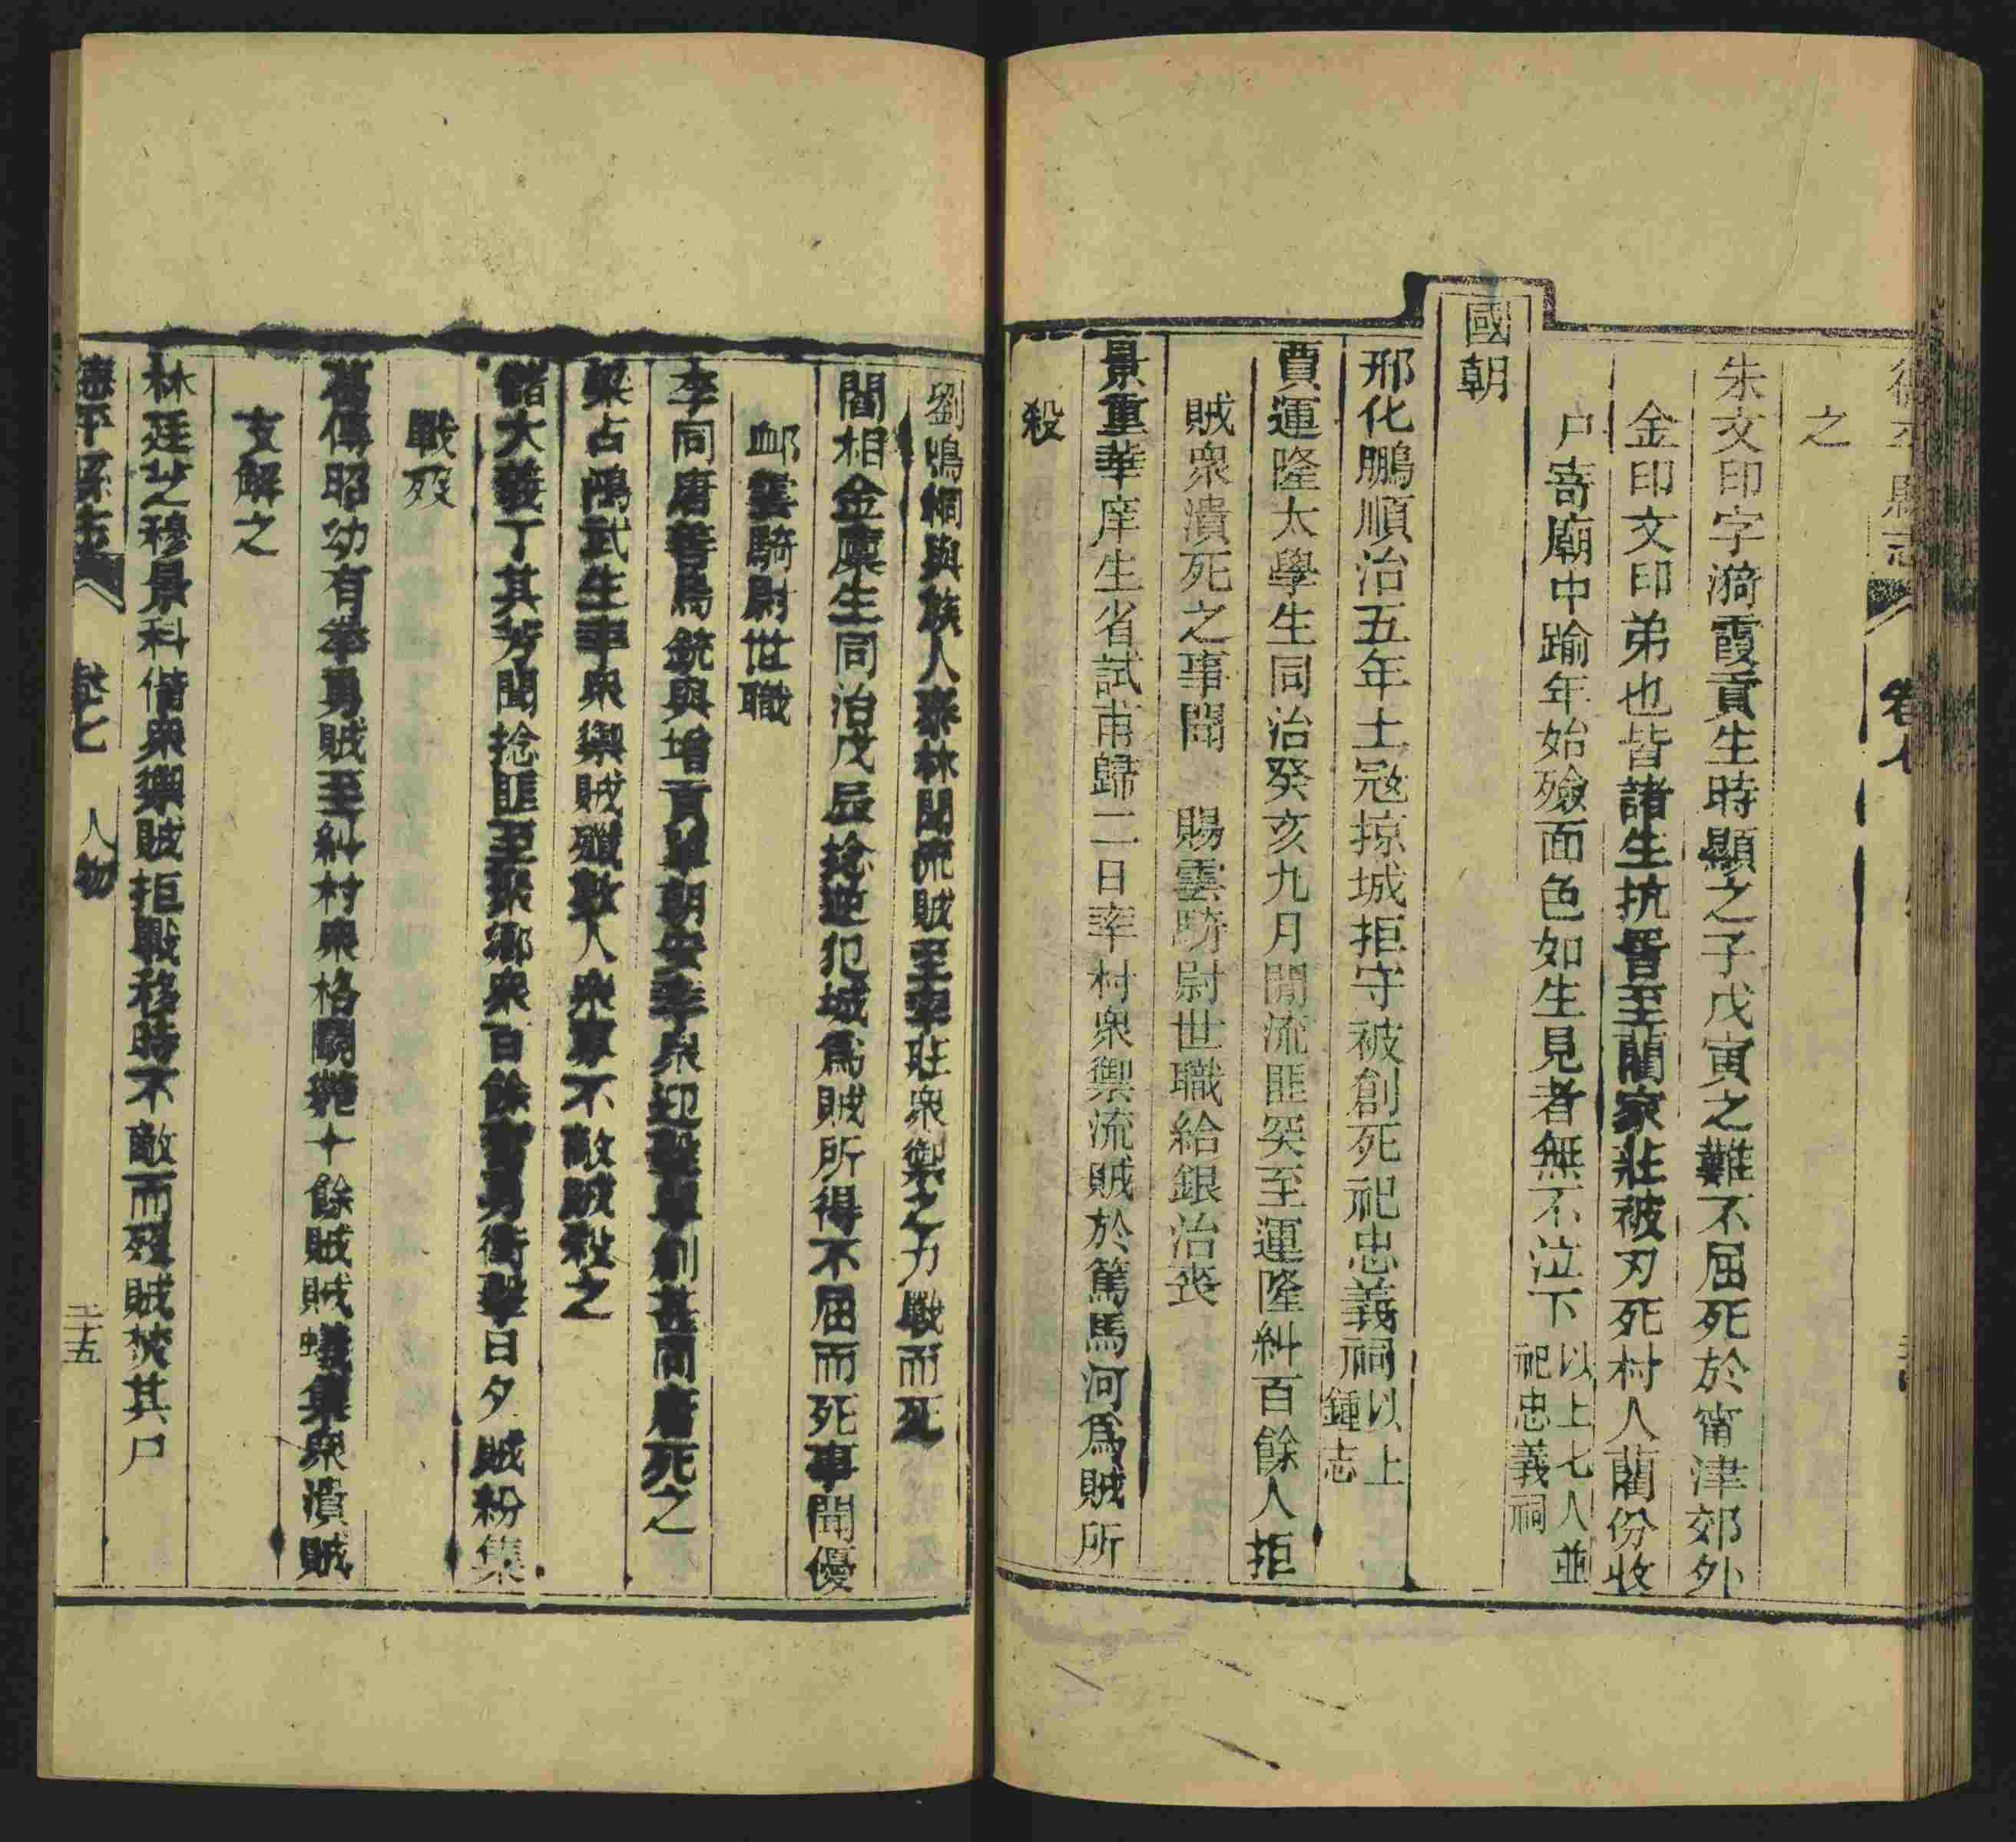 德平縣志 卷七
之
朱文印字漪霞貢生時顯之子戊寅之難不屈死於甯津郊外
金印文印弟也皆諸生抗詈至藺家莊被刃死村人藺份收
户寄廟中踰年始殮面色如生見者無不泣下以上七人並
祀忠義祠
國朝
邢化鵬順治五年土寇掠城拒守被創死祀忠義祠以上
鍾志
賈運隆太學生同治癸亥九月聞流匪突至運隆糾百餘人拒
賊衆潰死之事聞 賜雲騎尉世職給銀治喪
景重華庠生省試甫歸二日率村衆禦流賊於篤馬河爲賊所
殺
劉鳴桐與族人泰林聞流賊至率莊衆禦之力戰而死
閻相金廩生同治戊辰捻逆犯城爲賊所得不屈而死事聞優
卹雲騎尉世職
李同唐善鳥銃與增貢單朝安率衆迎擊單創甚同唐死之
梁占鴻武生率衆禦賊殲數人衆寡不敵賊殺之
儲大義丁其芳聞捻匪至聚鄉衆百餘奮勇衝擊日夕賊粉集
戰歿
葛傳昭幼有拳勇賊至糾村衆格鬭斃十餘賊賊蟻集衆潰賊
支解之
林廷芝穆景科偕衆禦賊拒戰移時不敵而殞賊焚其尸
德平縣志 卷七 人物 三十五